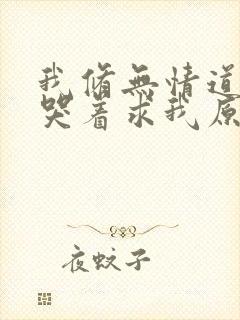 我脩無情道
哭着求我原
夜蚊子